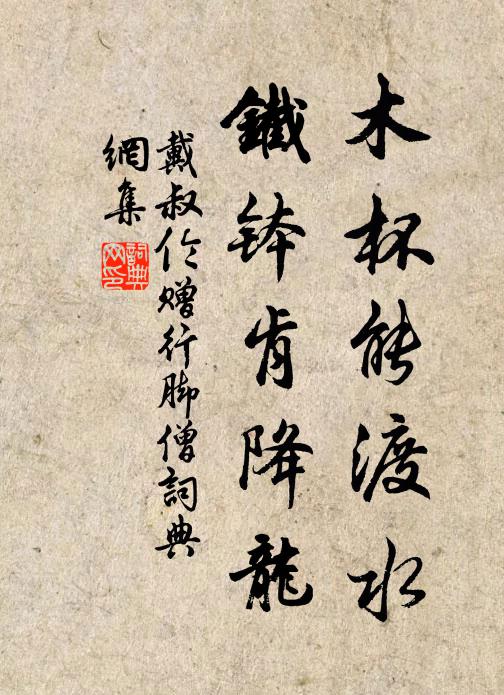 木杯能渡水
鐵鉢肯降龍
戴叔伦贈行脚僧詞典
網集
詞典网印